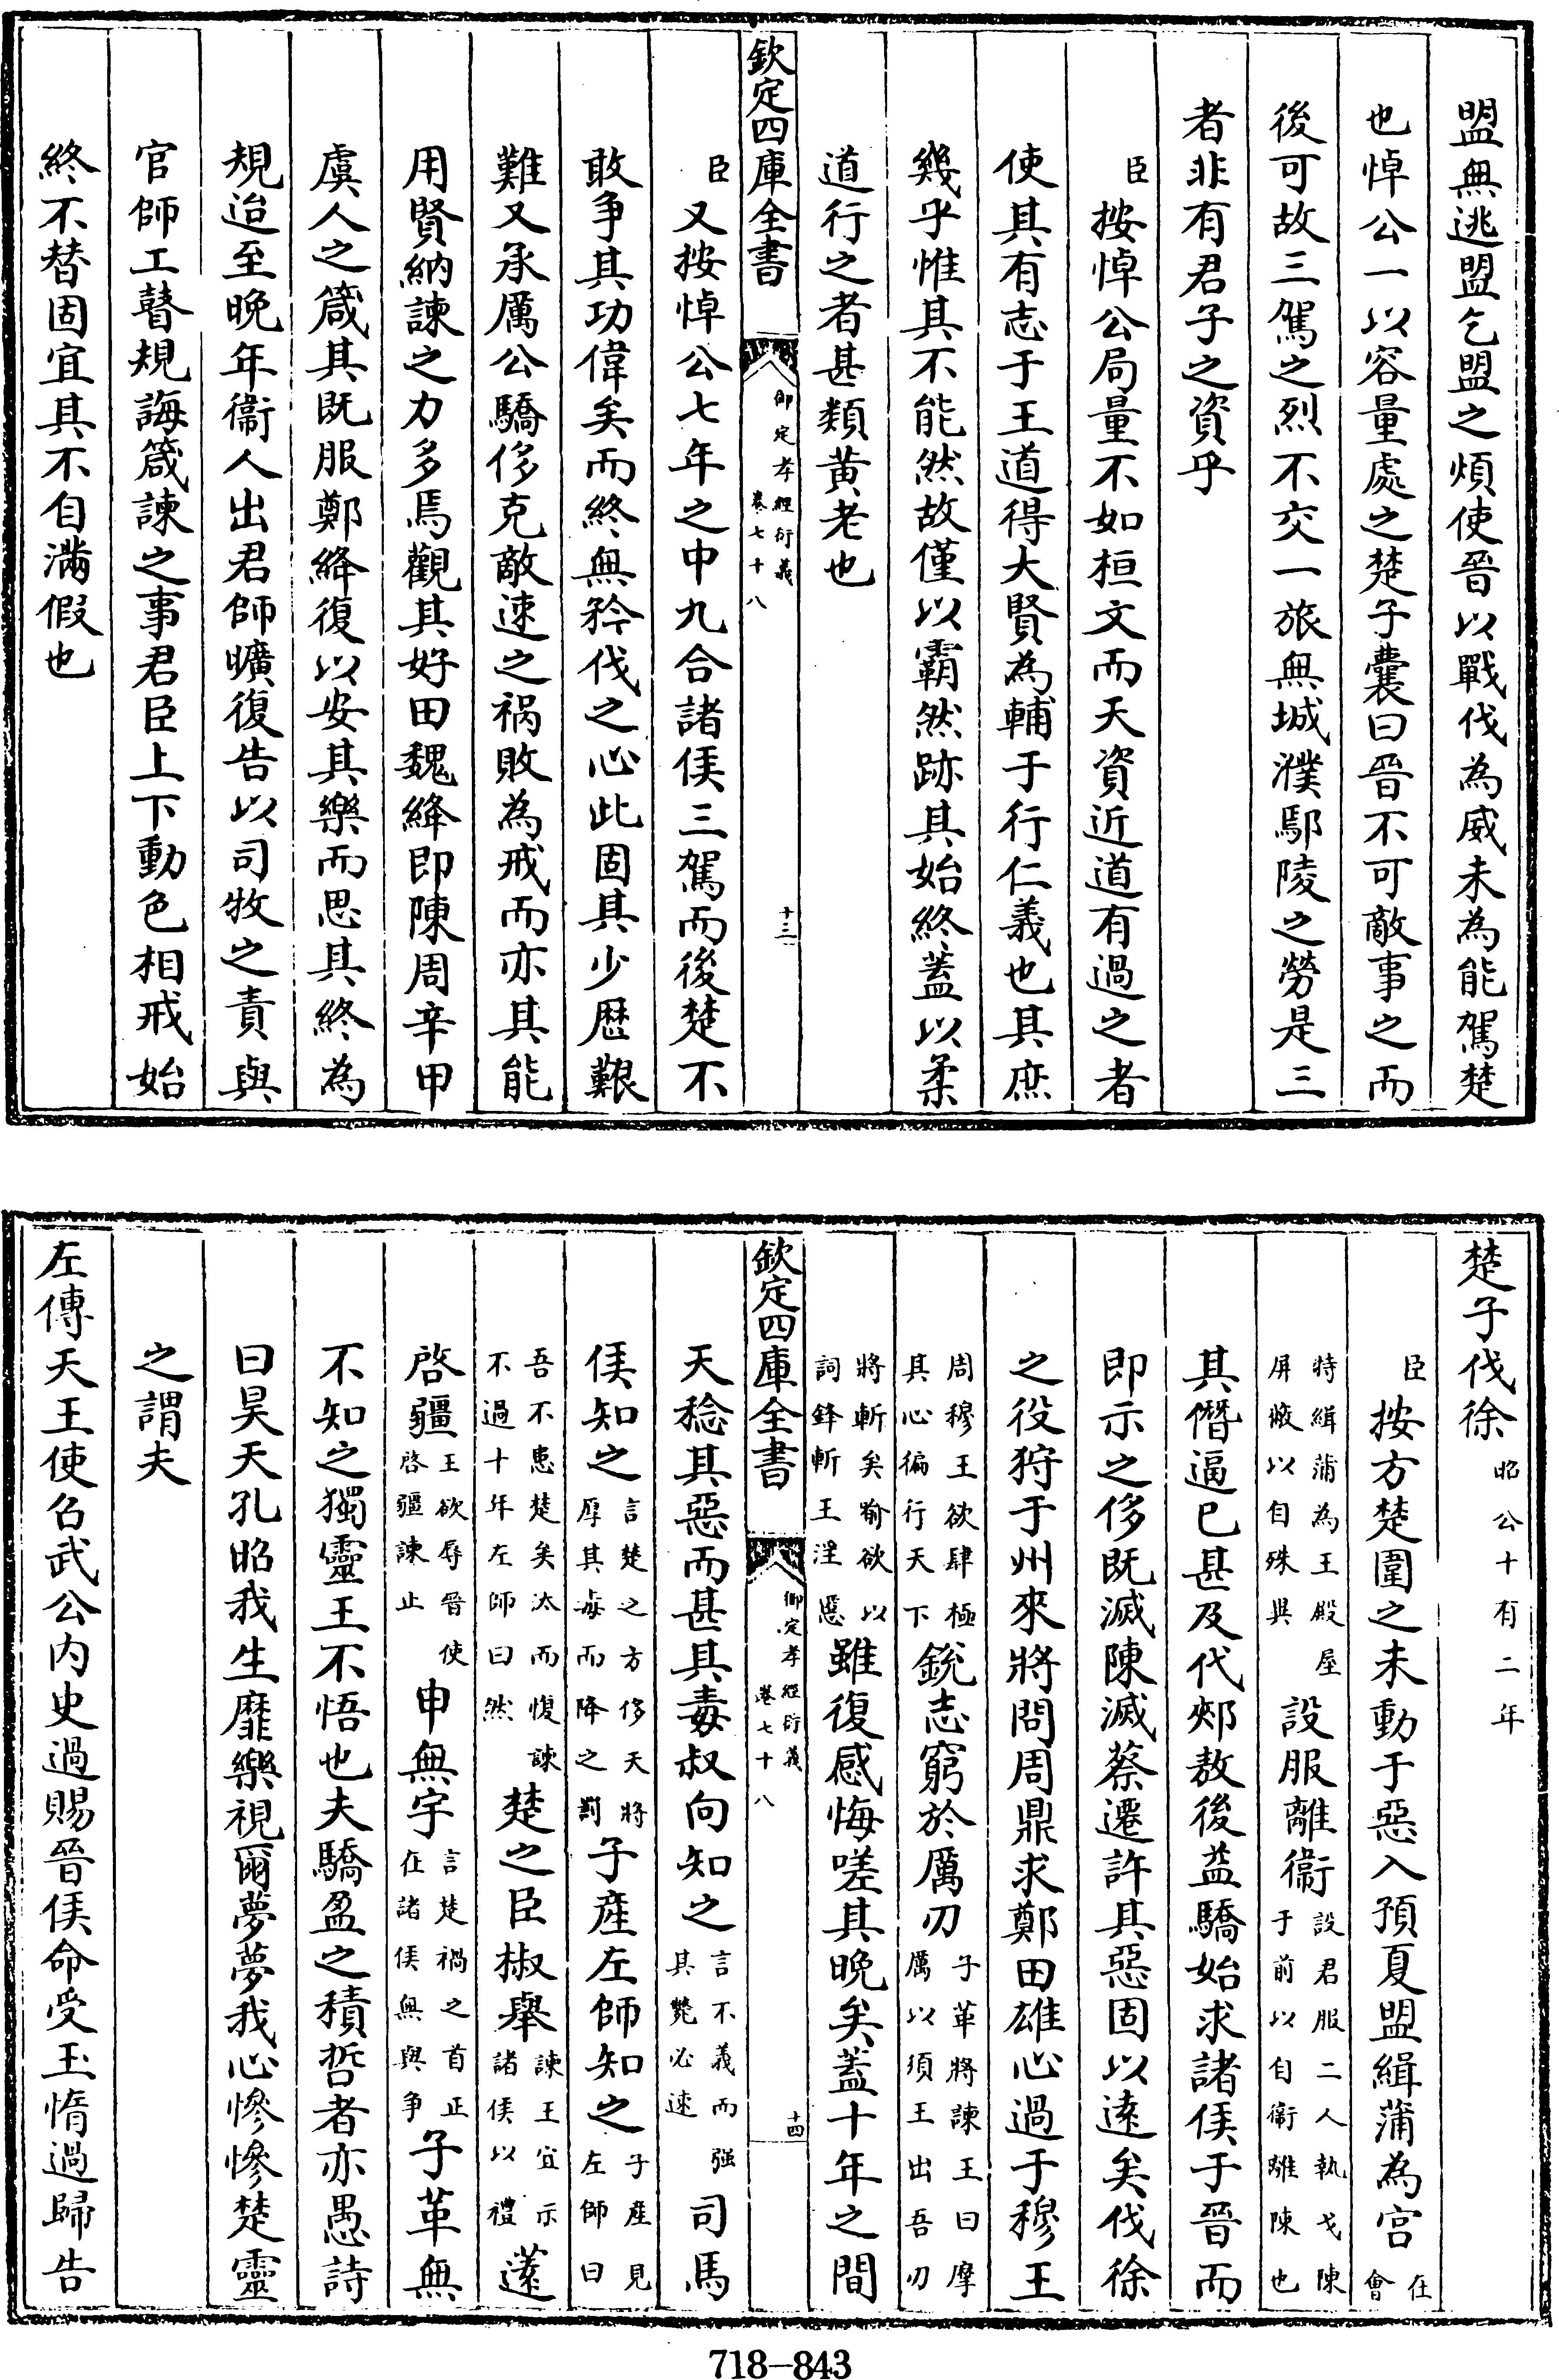 盟無逃盟乞盟之煩使晉以戰伐為威未為能駕楚
也悼公一以容量處之楚子囊曰晉不可敵事之而
後可故三駕之烈不交一旅無城濮鄢陵之勞是三
者非有君子之資乎
臣按悼公局量不如桓文而天資近道有過之者
使其有志于王道得大賢為輔于行仁義也其庶
幾乎惟其不能然故僅以霸然跡其始終蓋以柔
道行之者甚類黄老也
欽定四庫全書 御定孝經衍義 卷七十八 十三
臣又按悼公七年之中九合諸侯三駕而後楚不
敢争其功偉矣而終無矜伐之心此固其少歴艱
難又承厲公驕侈克敵速之禍敗為戒而亦其能
用賢納諫之力多焉觀其好田魏絳即陳周辛甲
虞人之箴其既服鄭絳復以安其樂而思其終為
規迨至晚年衛人出君師曠復告以司牧之責與
官師工瞽規誨箴諫之事君臣上下動色相戒始
終不替固宜其不自滿假也
楚子伐徐昭公十有二年
臣按方楚圍之未動于惡入預夏盟緝蒲為宫在會
特緝蒲為王殿屋屏蔽以自殊異設服離衛設君服二人執戈陳于前以自衛離陳也
其僭逼已甚及代郟敖後益驕始求諸侯于晉而
即示之侈既滅陳滅蔡遷許其惡固以逺矣伐徐
之役狩于州來將問周鼎求鄭田雄心過于穆王
周穆王欲肆極其心徧行天下銳志窮於厲刃子革將諫王曰摩厲以須王出吾刃
將斬矣喻欲以詞鋒斬王淫慝雖復感悔嗟其晚矣蓋十年之間
欽定四庫全書 御定孝經衍義 卷七十八 十四
天稔其惡而甚其毒叔向知之言不義而强其斃必速司馬
侯知之言楚之方侈天將厚其毒而降之罰子産左師知之子産見左師曰
吾不患楚矣汰而愎諫不過十年左師曰然楚之臣椒舉諫王宜示諸侯以禮薳
啓疆王欲辱晉使啓疆諫止申無宇言楚禍之首正在諸侯無與争子革無
不知之獨靈王不悟也夫驕盈之積哲者亦愚詩
曰昊天孔昭我生靡樂視爾夢夢我心慘慘楚靈
之謂夫
左傳天王使召武公内史過賜晉侯命受玉惰過歸告
718-843